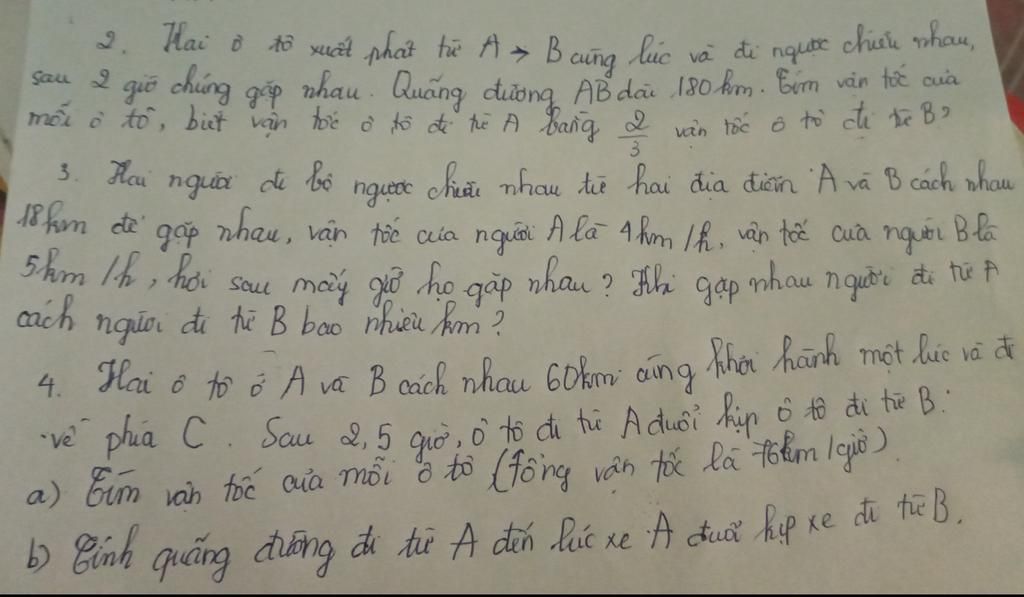 2. Hai ô tô xuất phát từ A → B cùng lúc và đi ngược chiều nhau,
sau 2 giờ chúng gặp nhau. Quãng đường AB dài 180km. Tìm vận tốc của
mỗi ô tô, biết vận tốc ô tô đi từ A bằng 2/3 vận tốc ô tô đi từ B?
3. Hai người đi bộ ngược chiều nhau từ hai địa điểm A và B cách nhau
18km để gặp nhau, vận tốc của người A là 4km/h, vận tốc của người B là
5km/h, hỏi sau mấy giờ họ gặp nhau? Khi gặp nhau người đi từ A
cách người đi từ B bao nhiêu km?
4. Hai ô tô ở A và B cách nhau 60km cùng khởi hành một lúc và đi
về phía C. Sau 2,5 giờ, ô tô đi từ A đuổi kịp ô tô đi từ B.
a) Tìm vận tốc của mỗi ô tô (tổng vận tốc là 76km/giờ).
b) Tính quãng đường đi từ A đến lúc xe A đuổi kịp xe đi từ B.